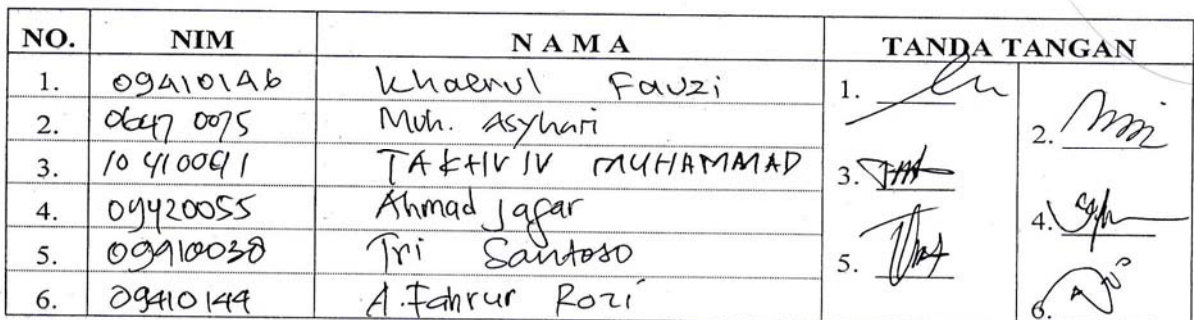 NO. NIM NAMA TANDA TANGAN
1. 09410146 Khaerul Fauzi 1.
2. Muh. Asyhari 2.
3. TAKHIVIV MUHAMMAD 3.
4. 09420055 Ahmad Jafar 4.
5. 09410038 Tri Santoso 5.
6. 09410144 A. Fahrur Rozi 6.